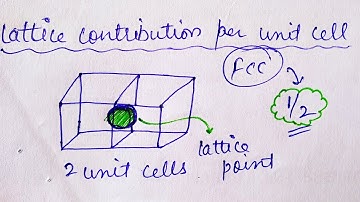 Lattice contribution per unit cell
FCC
1/2
lattice
point
2 unit cells